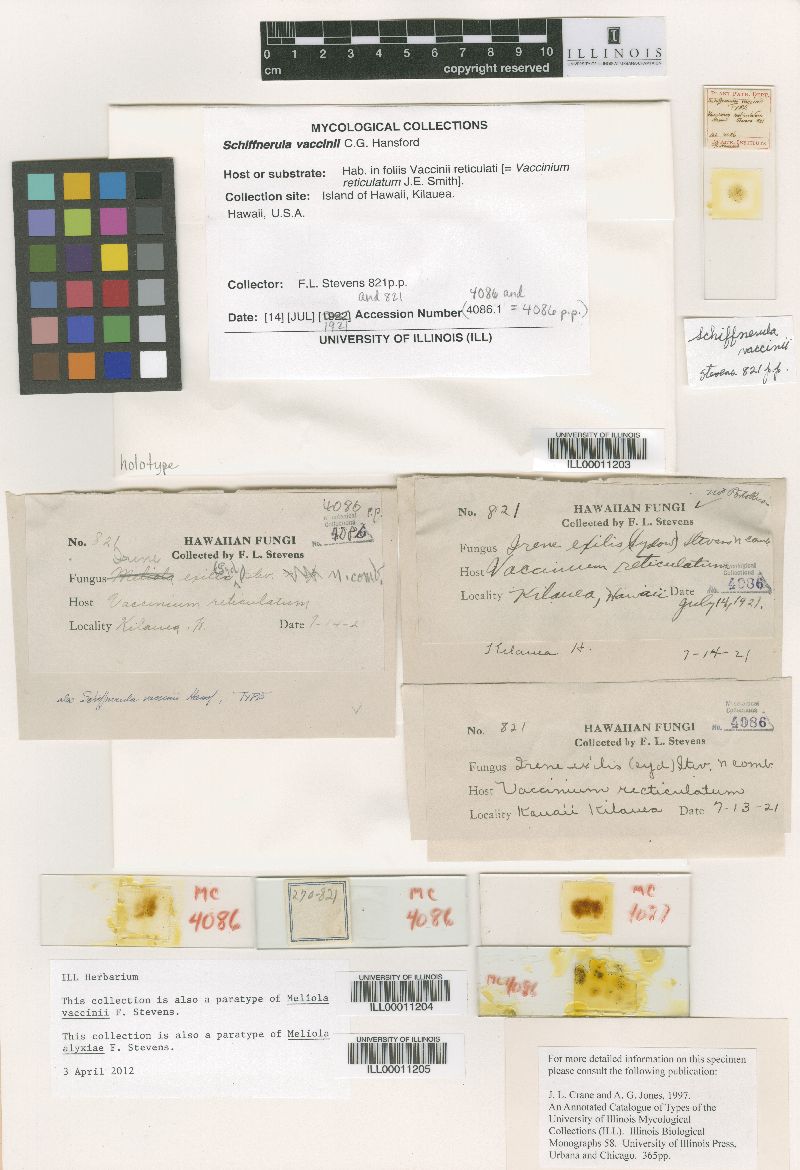 0 1 2 3 4 5 6 7 8 9 10
cm
copyright reserved
ILLINOIS
MYCOLOGICAL COLLECTIONS
Schiffnerula vaccinii C.G. Hansford
Host or substrate: Hab. in foliis Vaccinii reticulati [= Vaccinium
reticulatum J.E. Smith].
Collection site: Island of Hawaii, Kilauea.
Hawaii, U.S.A.
Collector: F.L. Stevens 821p.p.
and 821
4086 and
Date: [14] [JUL] [1922] Accession Number (4086.1 = 4086 p.p.)
1921
UNIVERSITY OF ILLINOIS (ILL)
PLANT PATH. DEPT.
Schiffnerula vaccinii
TYPE
Schiffnerula
vaccinii
Stevens 821 p.p.
holotype
UNIVERSITY OF ILLINOIS
ILL00011203
4086 p.p.
Mycological
Collections
No. 4086
No. 821 HAWAIIAN FUNGI
Collected by F. L. Stevens
Irene
Fungus Meliola exilis (Syd) Stev. n. comb.
Host Vaccinium reticulatum
Locality Kilauea, H. Date 7-14-2
Schiffnerula vaccinii Hansf., TYPE
No. 821 HAWAIIAN FUNGI
Collected by F. L. Stevens
Fungus Irene exilis (Sydow) Stevens n comb
Host Vaccinium reticulatum
Mycological
Collections
No. 4086
Locality Kilauea, Hawaii Date July 14, 1921.
Kilauea H. 7-14-21
Mycological
Collections
No. 4086
No. 821 HAWAIIAN FUNGI
Collected by F. L. Stevens
Fungus Irene exilis (Syd) Stev. n comb
Host Vaccinium recticulatum
Locality Kauaii Kilauea Date 7-13-21
MC
4086
270-821
MC
4086
MC
4087
MC 4086
ILL Herbarium
This collection is also a paratype of Meliola
vaccinii F. Stevens.
This collection is also a paratype of Meliola
alyxiae F. Stevens.
3 April 2012
UNIVERSITY OF ILLINOIS
ILL00011204
UNIVERSITY OF ILLINOIS
ILL00011205
For more detailed information on this specimen
please consult the following publication:
J. L. Crane and A. G. Jones. 1997.
An Annotated Catalogue of Types of the
University of Illinois Mycological
Collections (ILL). Illinois Biological
Monographs 58. University of Illinois Press,
Urbana and Chicago. 365pp.